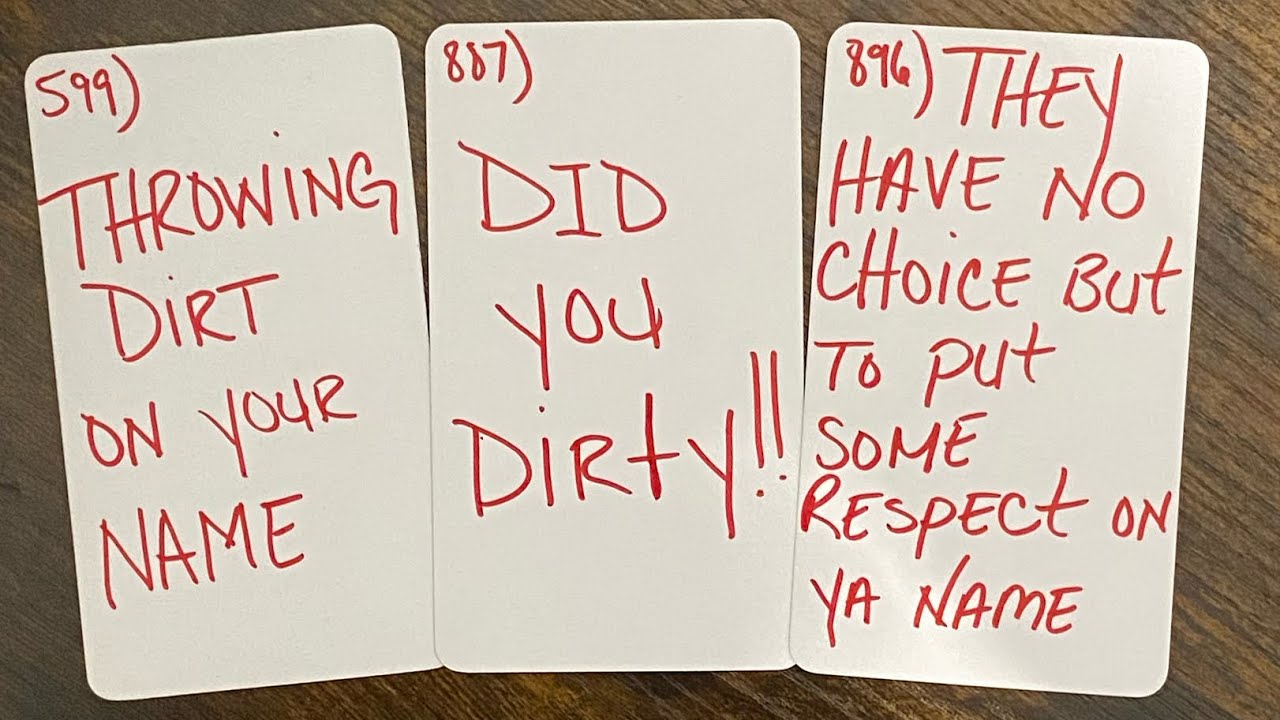 599)
THROWING
DIRT
ON YOUR
NAME
887)
DID
YOU
DIRTY!!
896) THEY
HAVE NO
CHOICE BUT
TO PUT
SOME
RESPECT ON
YA NAME